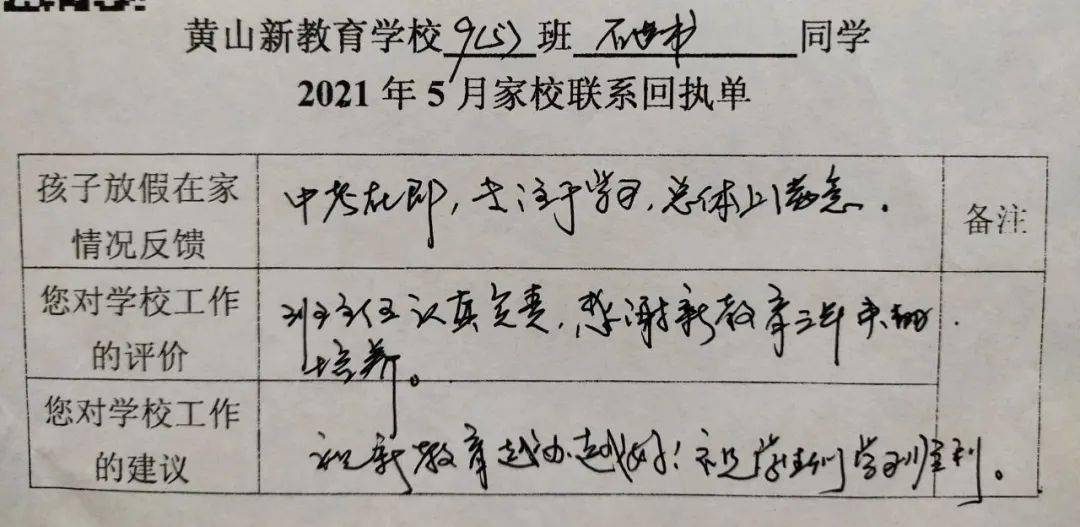 黄山新教育学校 9(5) 班 同学
2021 年 5 月家校联系回执单
孩子放假在家
情况反馈
中考在即，专注于学习，总体上满意．
备注
您对学校工作
的评价
班主任认真负责，感谢新教育三年来的
培养。
您对学校工作
的建议
祝新教育越办越好！祝学生们学习顺利。